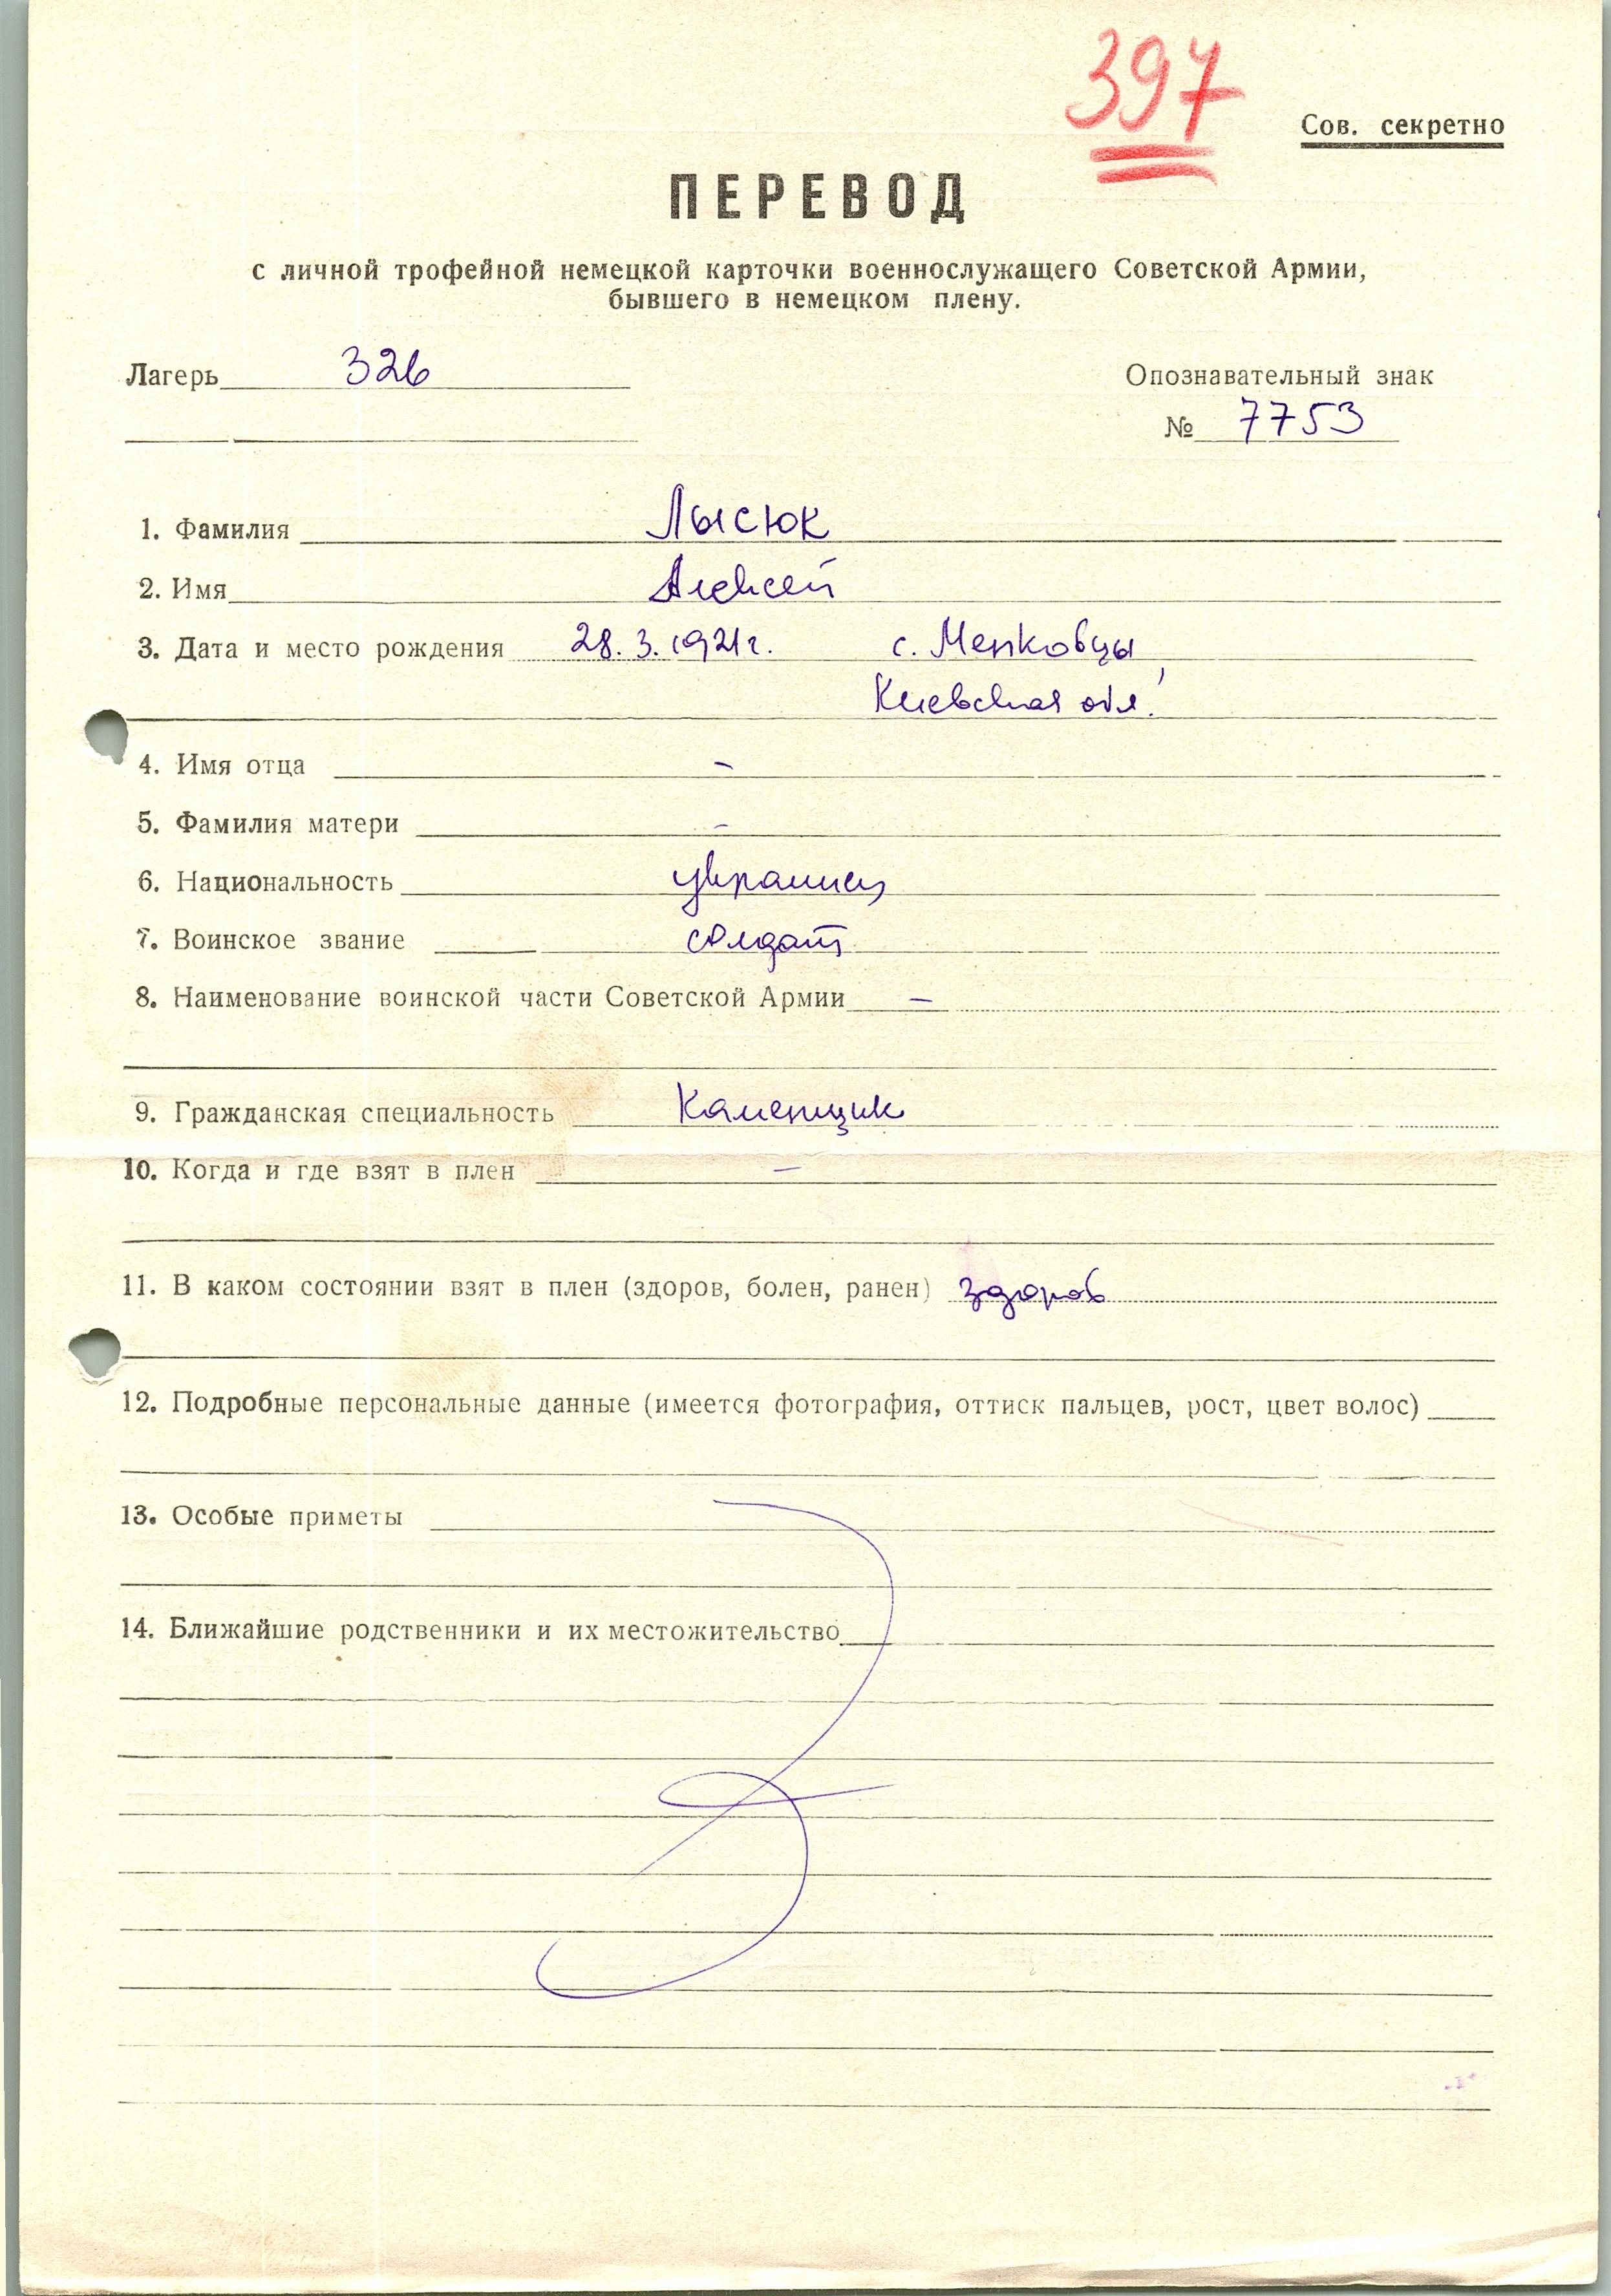 397
Сов. секретно
ПЕРЕВОД
с личной трофейной немецкой карточки военнослужащего Советской Армии,
бывшего в немецком плену.
Лагерь 326
Опознавательный знак
№ 7753
1. Фамилия Лысюк
2. Имя Алексей
3. Дата и место рождения 28.3.1921г. с. Мепковцы
Киевская обл.
4. Имя отца –
5. Фамилия матери –
6. Национальность украинец
7. Воинское звание солдат
8. Наименование воинской части Советской Армии –
9. Гражданская специальность Каменщик
10. Когда и где взят в плен –
11. В каком состоянии взят в плен (здоров, болен, ранен) здоров
12. Подробные персональные данные (имеется фотография, оттиск пальцев, рост, цвет волос)
13. Особые приметы
14. Ближайшие родственники и их местожительство